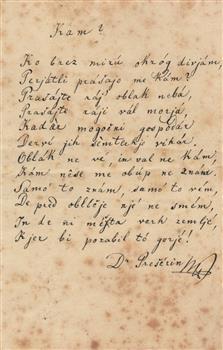 Kam?
Ko brez mirú okróg divjám,
Perjátli prašajo me kám?
Prašájte ràjš oblak nebá,
Prašájte ráji vál morjá,
Kadàr mogóčni gospodár
Derví jih sémtertjè vihár.
Oblák ne vé, in val ne kám,
Kám nêse me obúp ne znám.
Samó to znám, samó to vém,
De pred obličje njé ne smém,
In de ni mésta verh zemljé,
Kjer bi pozabil tó gorjé!
Dr Prešérin